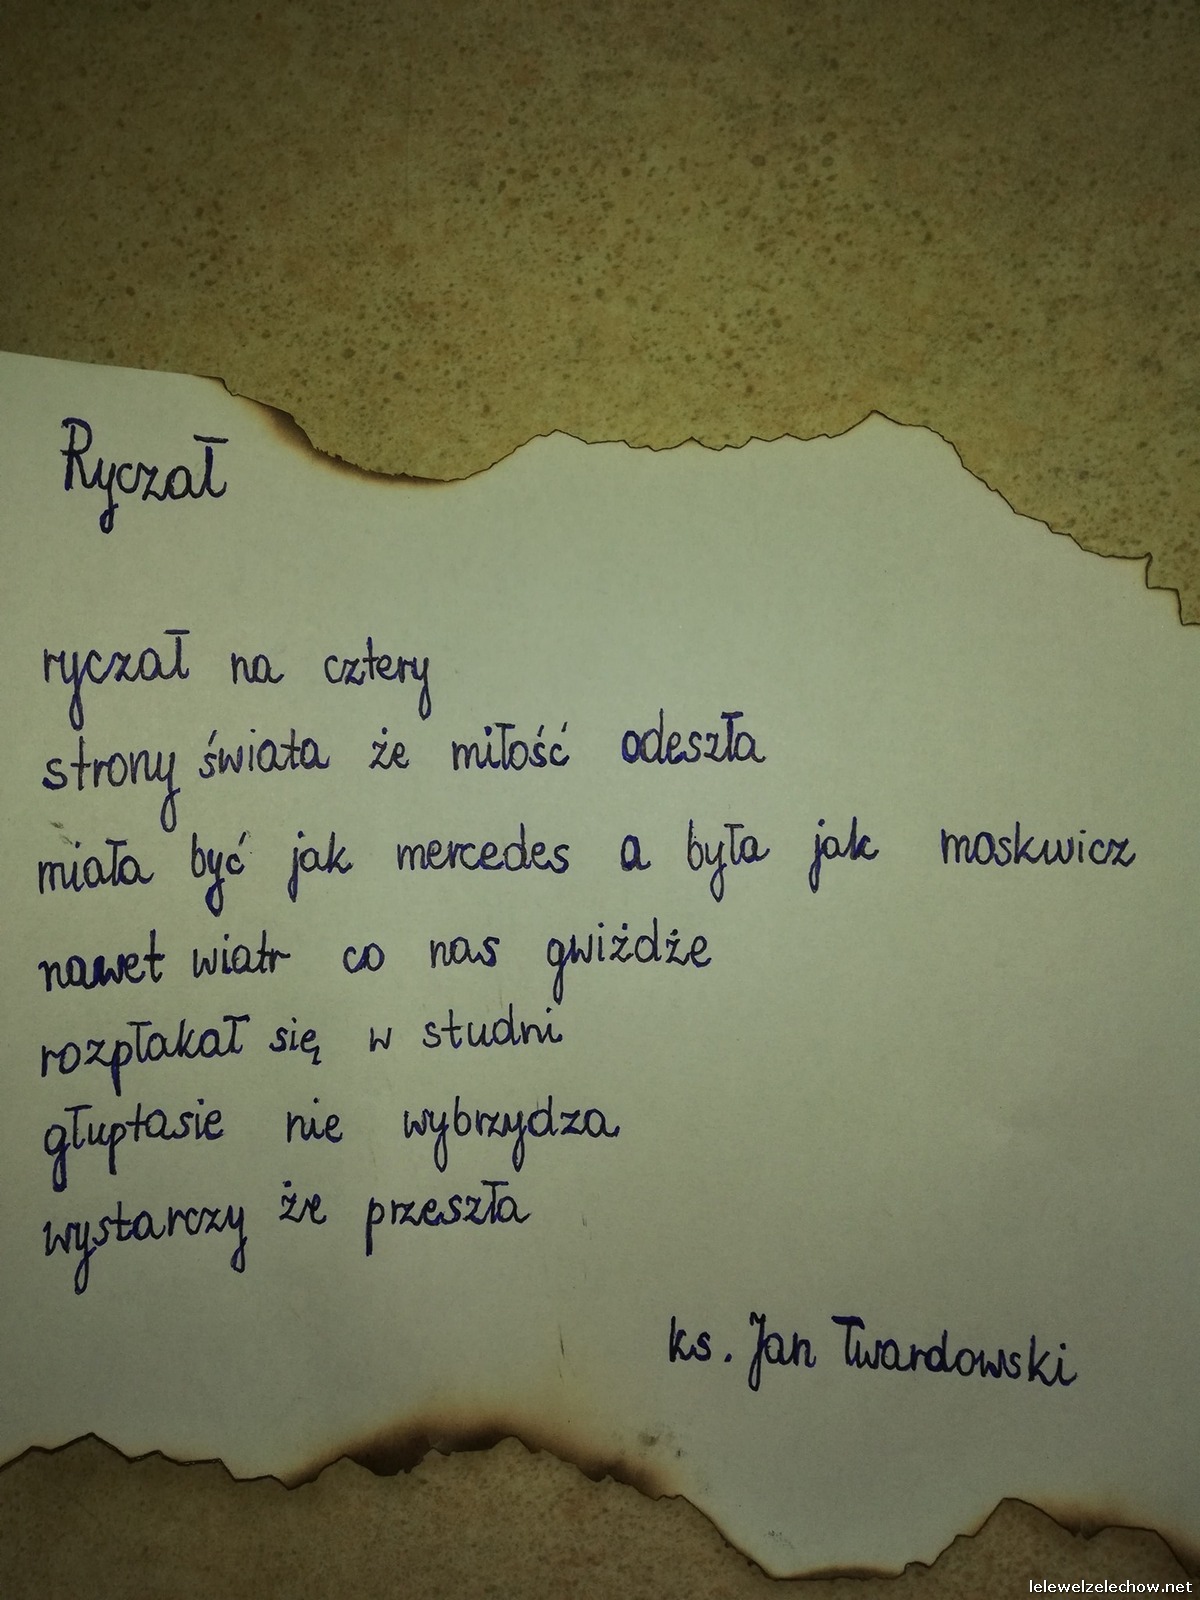 Ryczał
ryczał na cztery
strony świata że miłość odeszła
miała być jak mercedes a była jak moskwicz
nawet wiatr co nas gwiżdże
rozpłakał się w studni
głuptasie nie wybrzydza
wystarczy że przeszła
ks. Jan Twardowski
lelewelzelechow.net